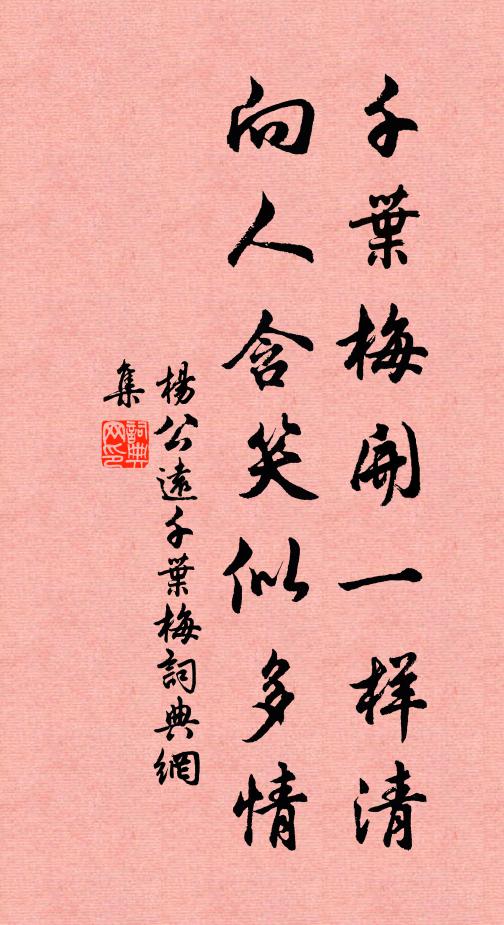 千葉梅開一样清
向人含笑似多情
楊公遠千葉梅詞典網
集
詞典网印